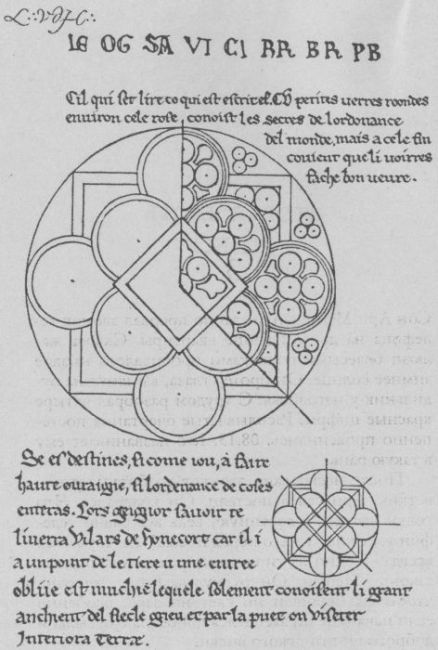 IE OG SA VI CI RR BR PB
Cil qui set lire co qui est escrit el CV petites verres roondes
environ cele rose, conoist les secres de lordonance
del monde, mais a cele fin
couient que li voirres
fache bon uevre.
Se es destines, si come vou, à faire
haute ouraigne, si lordenance de coses
enteras. Lors gignior sauoir te
liuerra Vilars de Honecort car il i
a un point de le tiere u une entree
obliie est muchie lequele solement conoisent li grant
anchien del siecle grieu et par la puet on Visiter
Interiora Terræ.